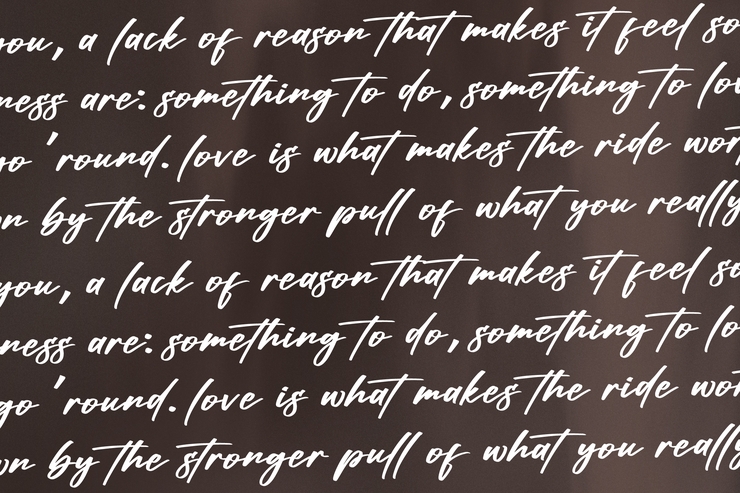 you, a lack of reason that makes it feel so
ness are: something to do, something to
go 'round. love is what makes the ride
by the stronger pull of what you really
you, a lack of reason that makes it feel so
ness are: something to do, something to
go 'round. love is what makes the ride
by the stronger pull of what you really